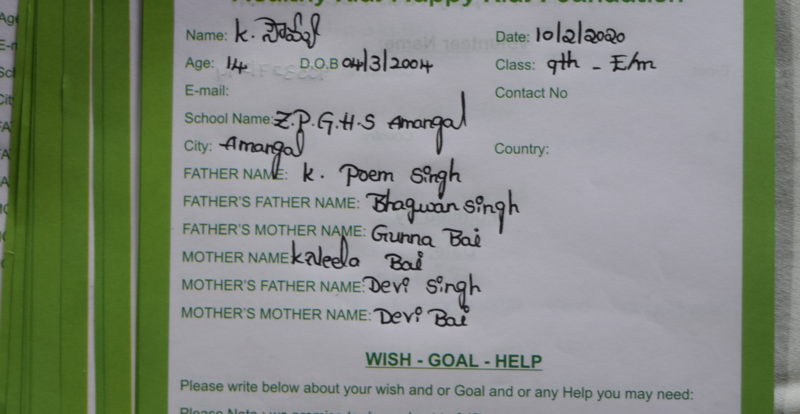 Healthy Kid. Happy Kid Foundation
Name: K. Date: 10/2/2020
Age: 14 D.O.B 04/3/2004 Class: 9th - E/m
E-mail: Contact No
School Name: Z.P.G.H.S Amangal
City: Amangal Country:
FATHER NAME: K. Poem Singh
FATHER'S FATHER NAME: Bhagwan Singh
FATHER'S MOTHER NAME: Gunna Bai
MOTHER NAME Bai
MOTHER'S FATHER NAME: Devi Singh
MOTHER'S MOTHER NAME: Devi Bai
WISH - GOAL - HELP
Please write below about your wish and or Goal and or any Help you may need: